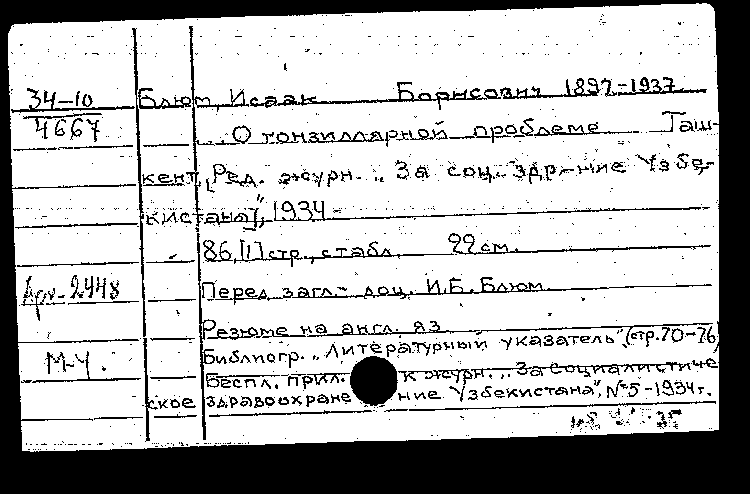 34-10 Блюм, Исаак Борисович 1897-1937.
4667 ... О тонзиллярной проблеме Таш-
кент, [Ред. журн. „За соц. здр-ние Узбе-
кистана]", 1934-
86,[1] стр., с табл. 22 см.
Арх-2448 Перед загл.- доц. И.Б. Блюм.
Резюме на англ. яз.
М-Ч. Библиогр. „Литературный указатель", (стр.70-76)
Беспл. прил. к журн. „За социалистиче
ское здравоохране ние Узбекистана", №5-1934г.